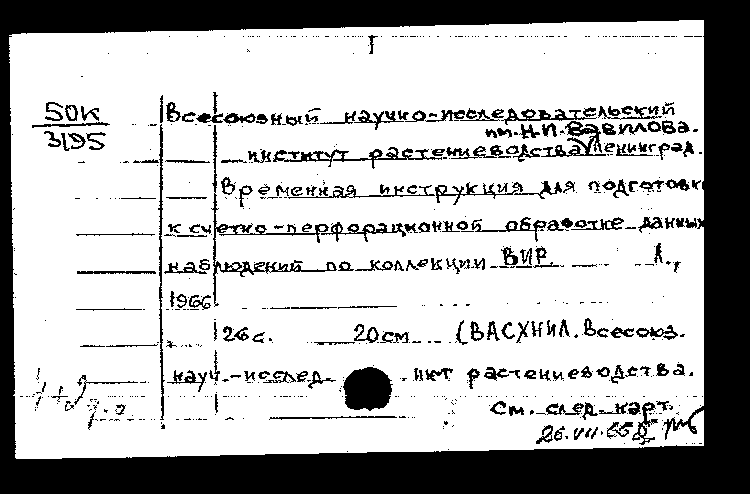 50К
3195
Всесоюзный научно-исследовательский
им. Н.И. Вавилова.
институт растениеводства Ленинград.
Временная инструкция для подготовки
к счетно-перфорационной обработке данных
наблюдений по коллекции ВИР. Л.,
1966
26 с. 20 см (ВАСХНИЛ. Всесоюз.
науч.-исслед. инт растениеводства.
См. след. карт.
26.VII.66